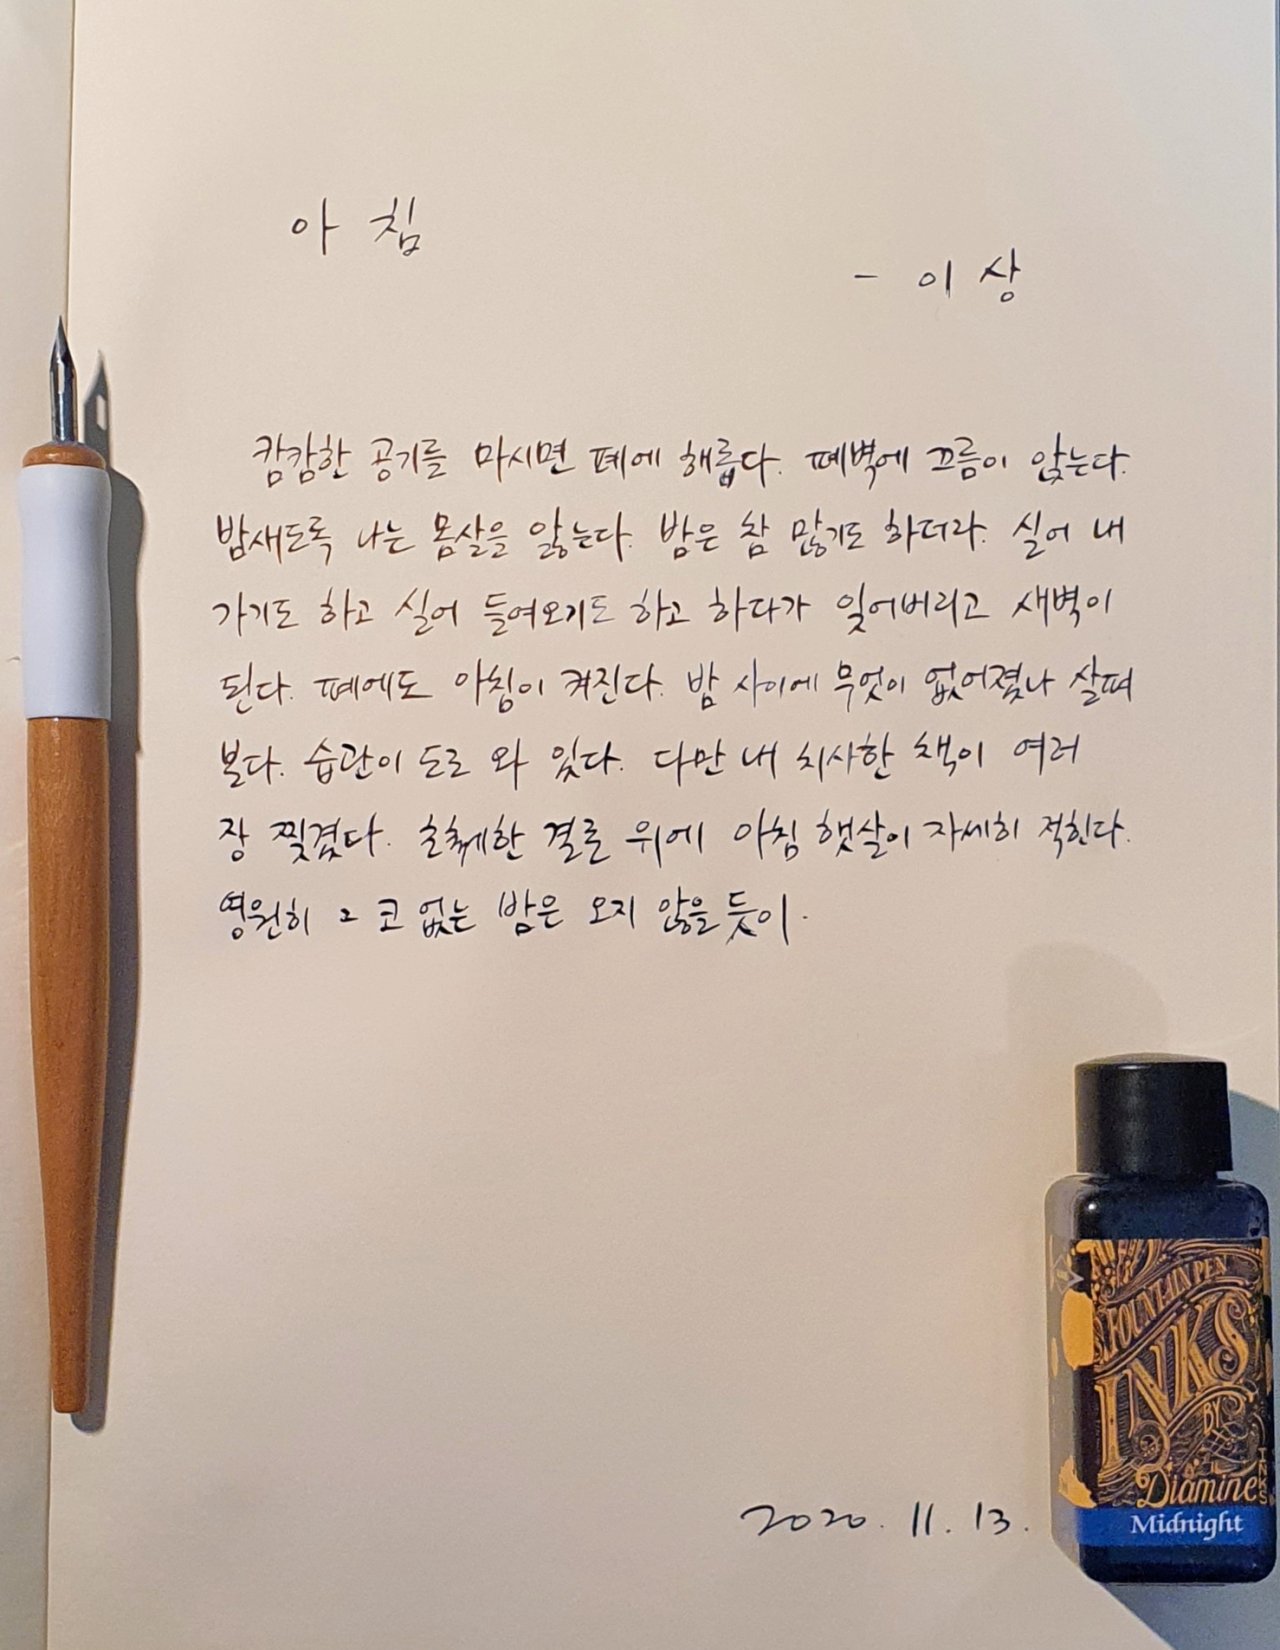 아침
- 이상
캄캄한 공기를 마시면 폐에 해롭다. 폐벽에 끄름이 앉는다.
밤새도록 나는 몸살을 앓는다. 밤은 참 많기도 하더라. 실어 내
가기도 하고 실어 들여오기도 하고 하다가 잊어버리고 새벽이
된다. 폐에도 아침이 켜진다. 밤 사이에 무엇이 없어졌나 살펴
본다. 습관이 도로 와 있다. 다만 내 치사한 책이 여러
장 찢겼다. 초췌한 결론 위에 아침 햇살이 자세히 적힌다.
영원히 그 코 없는 밤은 오지 않을 듯이.
FOUNTAIN PEN
INKS
BY
Diamine
INKS
Midnight
2020. 11. 13.